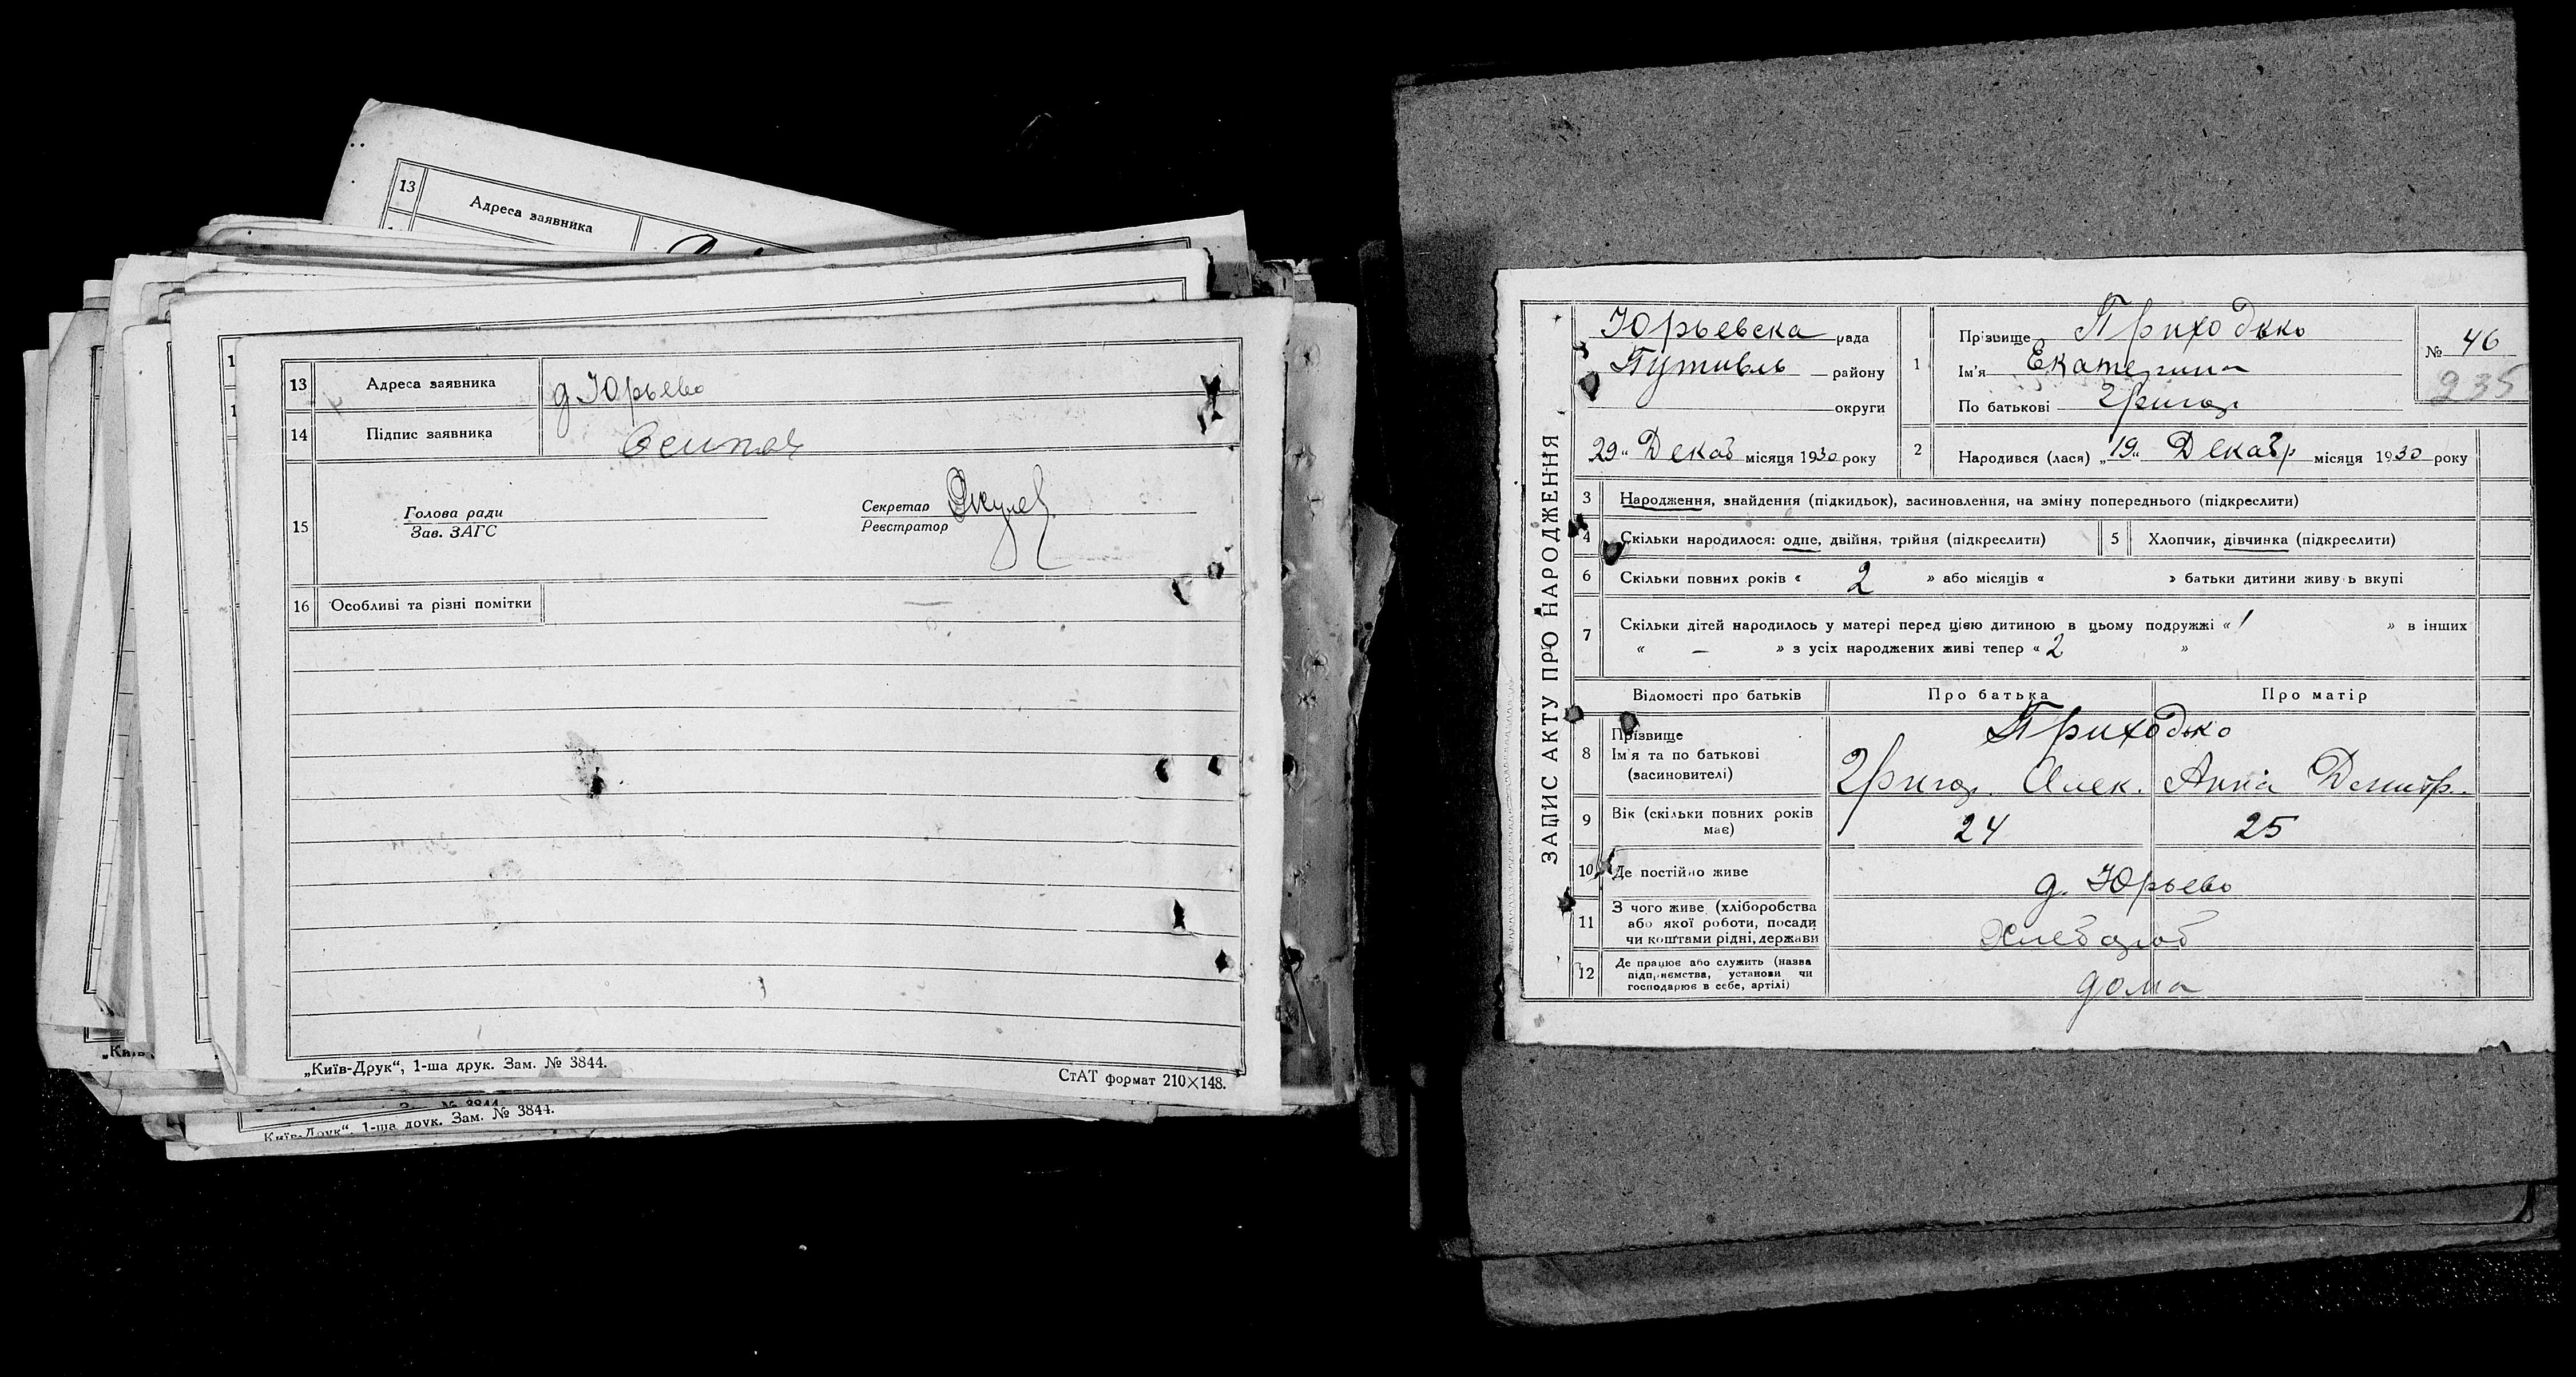 13 Адреса заявника
13 Адреса заявника д Юрьево
14 Підпис заявника
15 Голова ради
Зав. ЗАГС
Секретар
Реєстратор
16 Особливі та різні помітки —
„Київ-Друк“, 1-ша друк. Зам. № 3844.
СтАТ формат 210×148.
Київ-Друк“, 1-ша друк. Зам. № 3844.
ЗАПИС АКТУ ПРО НАРОДЖЕННЯ
Юрьевска рада
Путивль району
округи
29 „ Декаб місяця 1930 року
1 Прізвище Приходько
Ім'я Екатерина
По батькові Григор
№ 46
235
2 Народився (лася) „19„ Декабр місяця 1930 року
3 Народження, знайдення (підкидьок), засиновлення, на зміну попереднього (підкреслити)
4 Скільки народилося: одне, двійня, трійня (підкреслити) 5 Хлопчик, дівчинка (підкреслити)
6 Скільки повних років « 2 » або місяців « » батьки дитини живуть вкупі
7 Скільки дітей народилось у матері перед цією дитиною в цьому подружжі « 1 » в інших
« — » з усіх народжених живі тепер « 2 »
Відомості про батьків Про батька Про матір
8 Прізвище
Ім'я та по батькові
(засиновителі)
Приходько
Григор. Алек. Анна Дмитр.
9 Вік (скільки повних років
має) 24 25
10 Де постійно живе д. Юрьево
11 З чого живе (хліборобства
або якої роботи, посади
чи коштами рідні, держави
Хлебороб
12 Де працює або служить (назва
підприємства, установи чи
господарює в себе, артілі)
дома